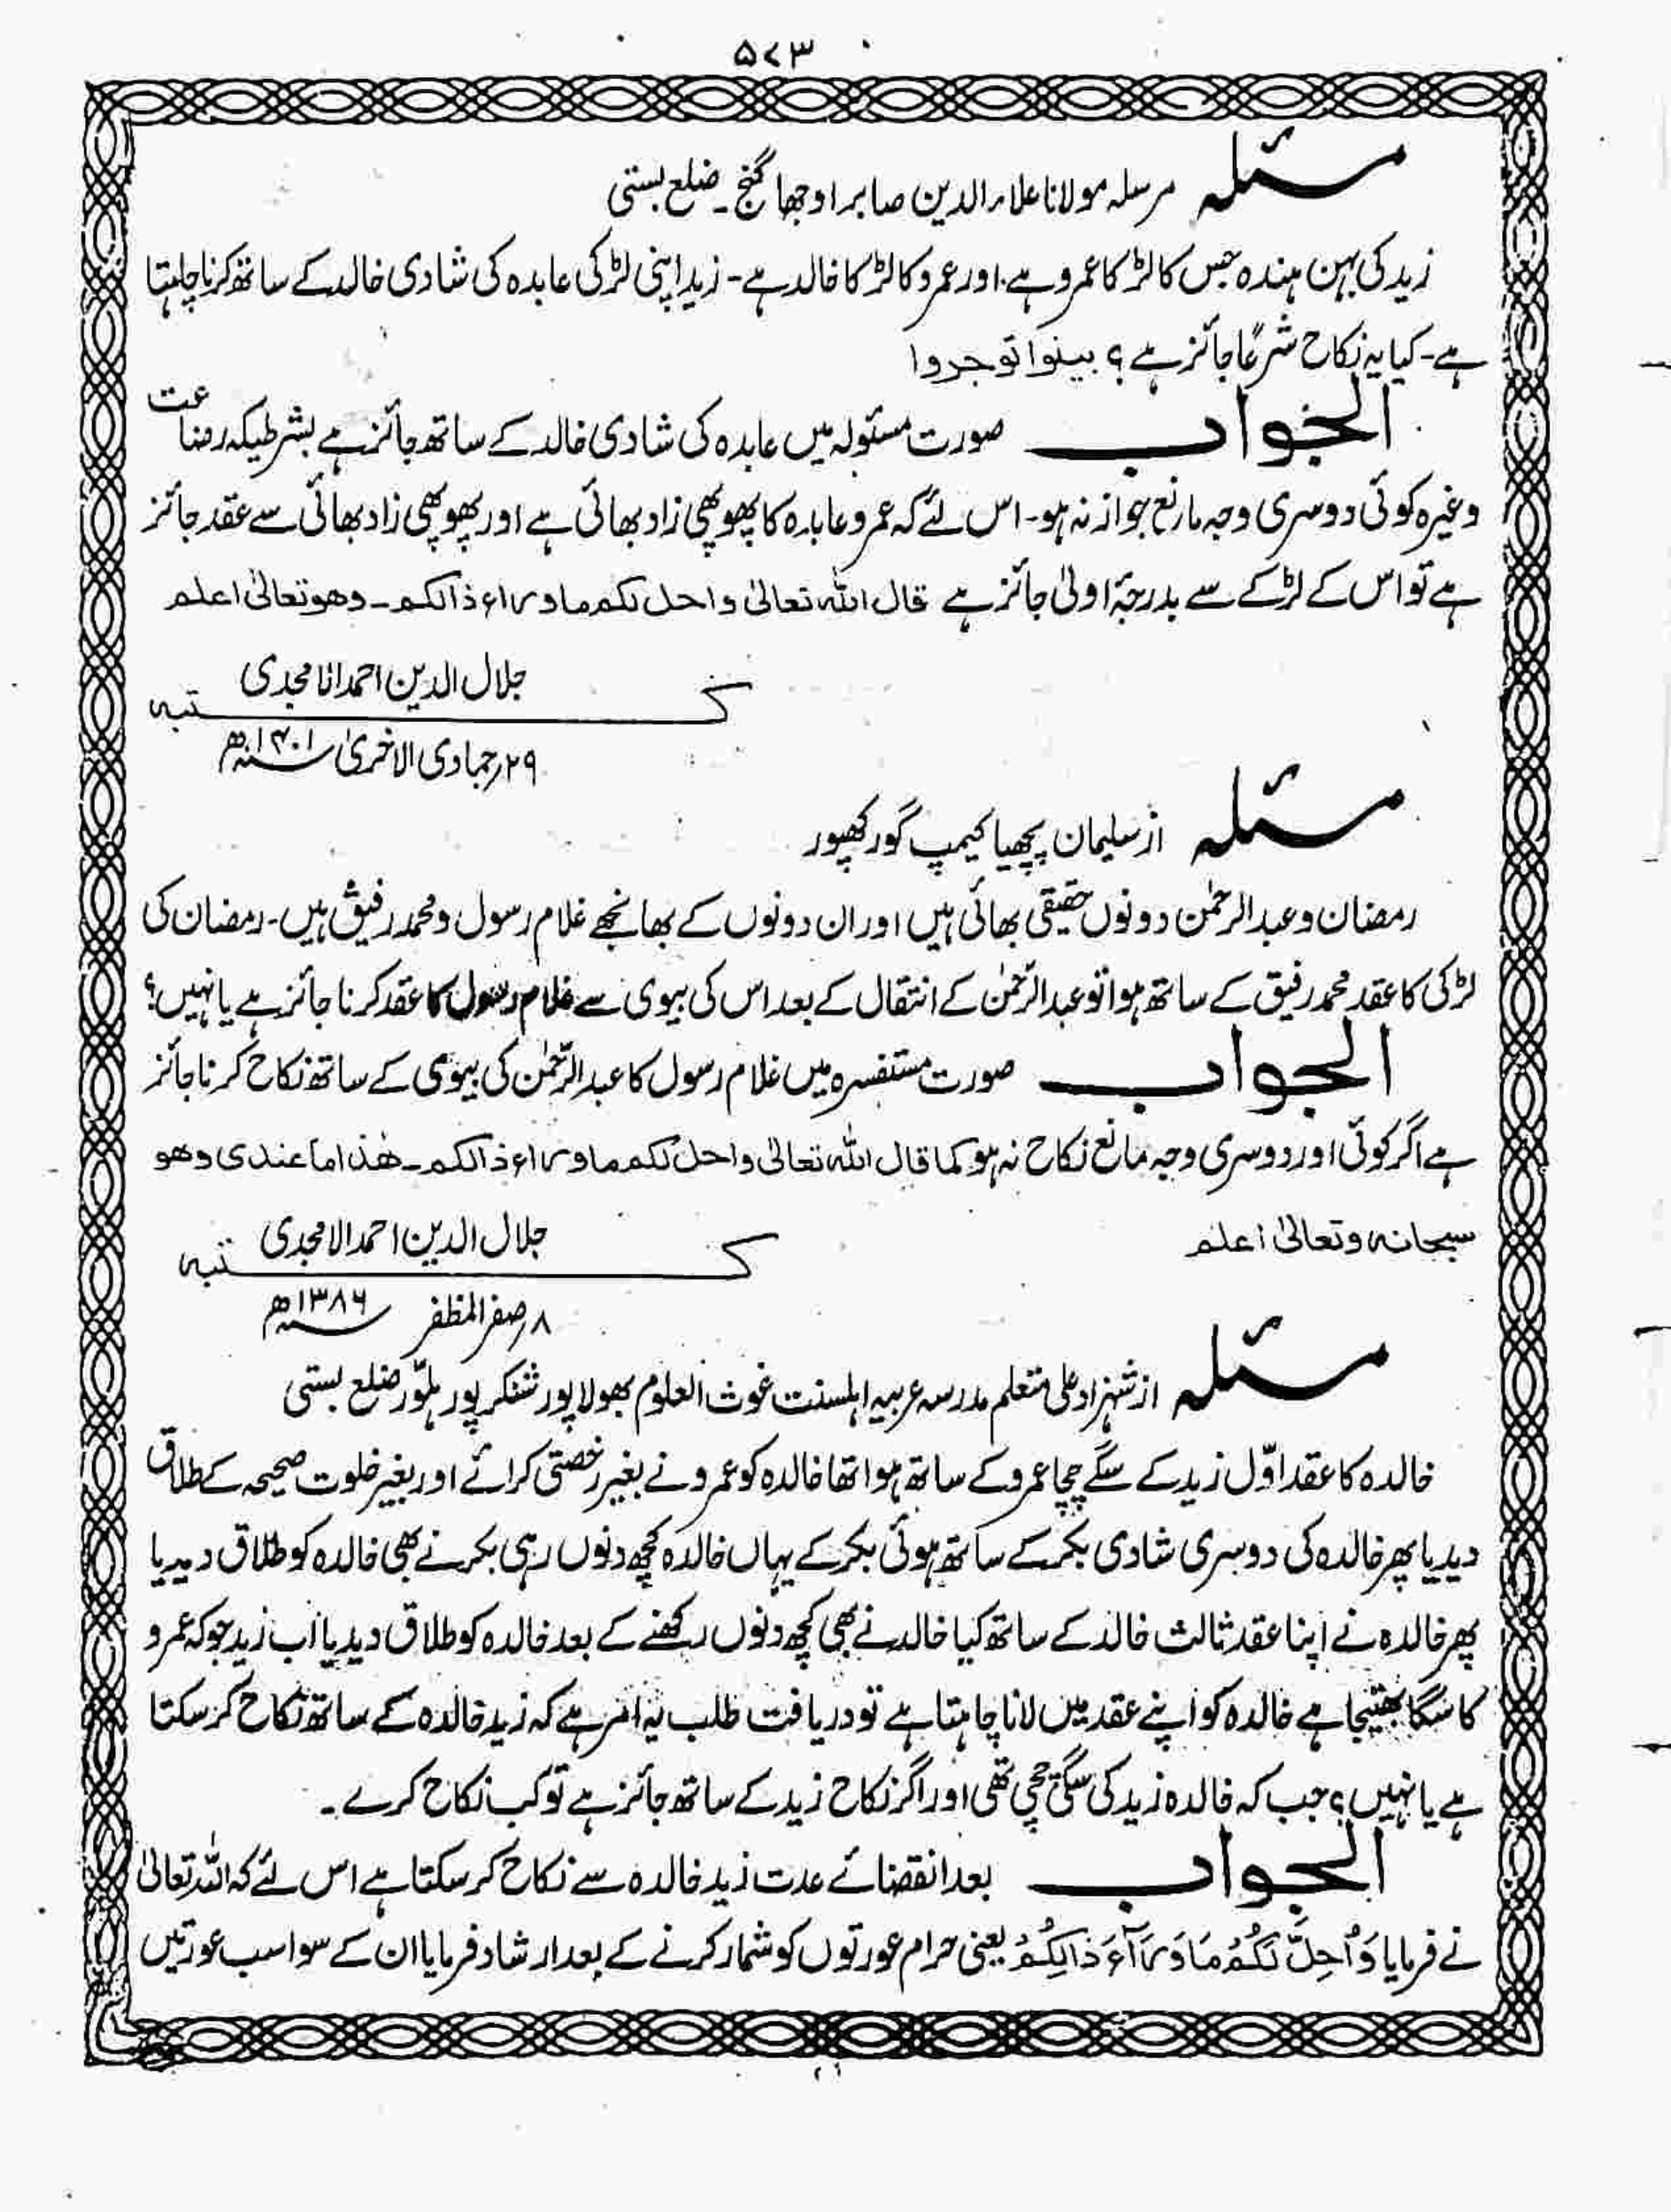 ۵۷۳
مسئلہ مرسلہ مولانا علاء الدین صابر اوجھا گنج ۔ ضلع بستی
زید کی بہن ہندہ جس کا لڑکا عمرو ہے، اور عمرو کا لڑکا خالد ہے۔ زید اپنی لڑکی عابدہ کی شادی خالد کے ساتھ کرنا چاہتا
ہے۔ کیا یہ نکاح شرعًا جائز ہے؟ بینوا توجروا
الجواب صورت مسئولہ میں عابدہ کی شادی خالد کے ساتھ جائز ہے بشرطیکہ رضاعت
وغیرہ کوئی دوسری وجہ مانع جواز نہ ہو۔ اس لئے کہ عمرو عابدہ کا پھوپھی زاد بھائی ہے اور پھوپھی زاد بھائی سے عقد جائز
ہے تو اس کے لڑکے سے بدرجۂ اولیٰ جائز ہے قال اللہ تعالیٰ واحل لکم ما وراء ذالکم۔ وھو تعالیٰ اعلم
جلال الدین احمد الامجدی
کتبہ
۲۹ر جمادی الاخریٰ سنہ ۱۴۰۱ھ
مسئلہ از سلیمان پچھیا کیمپ گورکھپور
رمضان و عبدالرحمٰن دونوں حقیقی بھائی ہیں اور ان دونوں کے بھانجے غلام رسول و محمد رفیق ہیں۔ رمضان کی
لڑکی کا عقد محمد رفیق کے ساتھ ہوا تو عبدالرحمٰن کے انتقال کے بعد اس کی بیوی سے غلام رسول کا عقد کرنا جائز ہے یا نہیں؟
الجواب صورت مستفسرہ میں غلام رسول کا عبدالرحمٰن کی بیوی کے ساتھ نکاح کرنا جائز
ہے اگر کوئی اور دوسری وجہ مانع نکاح نہ ہو کما قال اللہ تعالیٰ واحل لکم ما وراء ذالکم۔ ھٰذا ما عندی وھو
سبحانہ وتعالیٰ اعلم
جلال الدین احمد الامجدی
کتبہ
۸ر صفر المظفر سنہ ۱۳۸۶ھ
مسئلہ از شہزاد علی متعلم مدرسہ عربیہ اہلسنت غوث العلوم بھولا پور شنکر پور ہلّور ضلع بستی
خالدہ کا عقد اوّل زید کے سگے چچا عمرو کے ساتھ ہوا تھا خالدہ کو عمرو نے بغیر رخصتی کرائے اور بغیر خلوت صحیحہ کے طلاق
دیدیا پھر خالدہ کی دوسری شادی بکر کے ساتھ ہوئی بکر کے یہاں خالدہ کچھ دنوں رہی بکر نے بھی خالدہ کو طلاق دیدیا
پھر خالدہ نے اپنا عقد ثالث خالد کے ساتھ کیا خالد نے بھی کچھ دنوں رکھنے کے بعد خالدہ کو طلاق دیدیا اب زید جو کہ عمرو
کا سگا بھتیجا ہے خالدہ کو اپنے عقد میں لانا چاہتا ہے تو دریافت طلب یہ امر ہے کہ زید خالدہ کے ساتھ نکاح کر سکتا
ہے یا نہیں؟ جب کہ خالدہ زید کی سگی چچی تھی اور اگر نکاح زید کے ساتھ جائز ہے تو کب نکاح کرے۔
الجواب بعد انقضائے عدت زید خالدہ سے نکاح کر سکتا ہے اس لئے کہ اللہ تعالیٰ
نے فرمایا وَاُحِلَّ لَکُمْ مَا وَرَآءَ ذَالِکُمْ یعنی حرام عورتوں کو شمار کرنے کے بعد ارشاد فرمایا ان کے سوا سب عورتیں